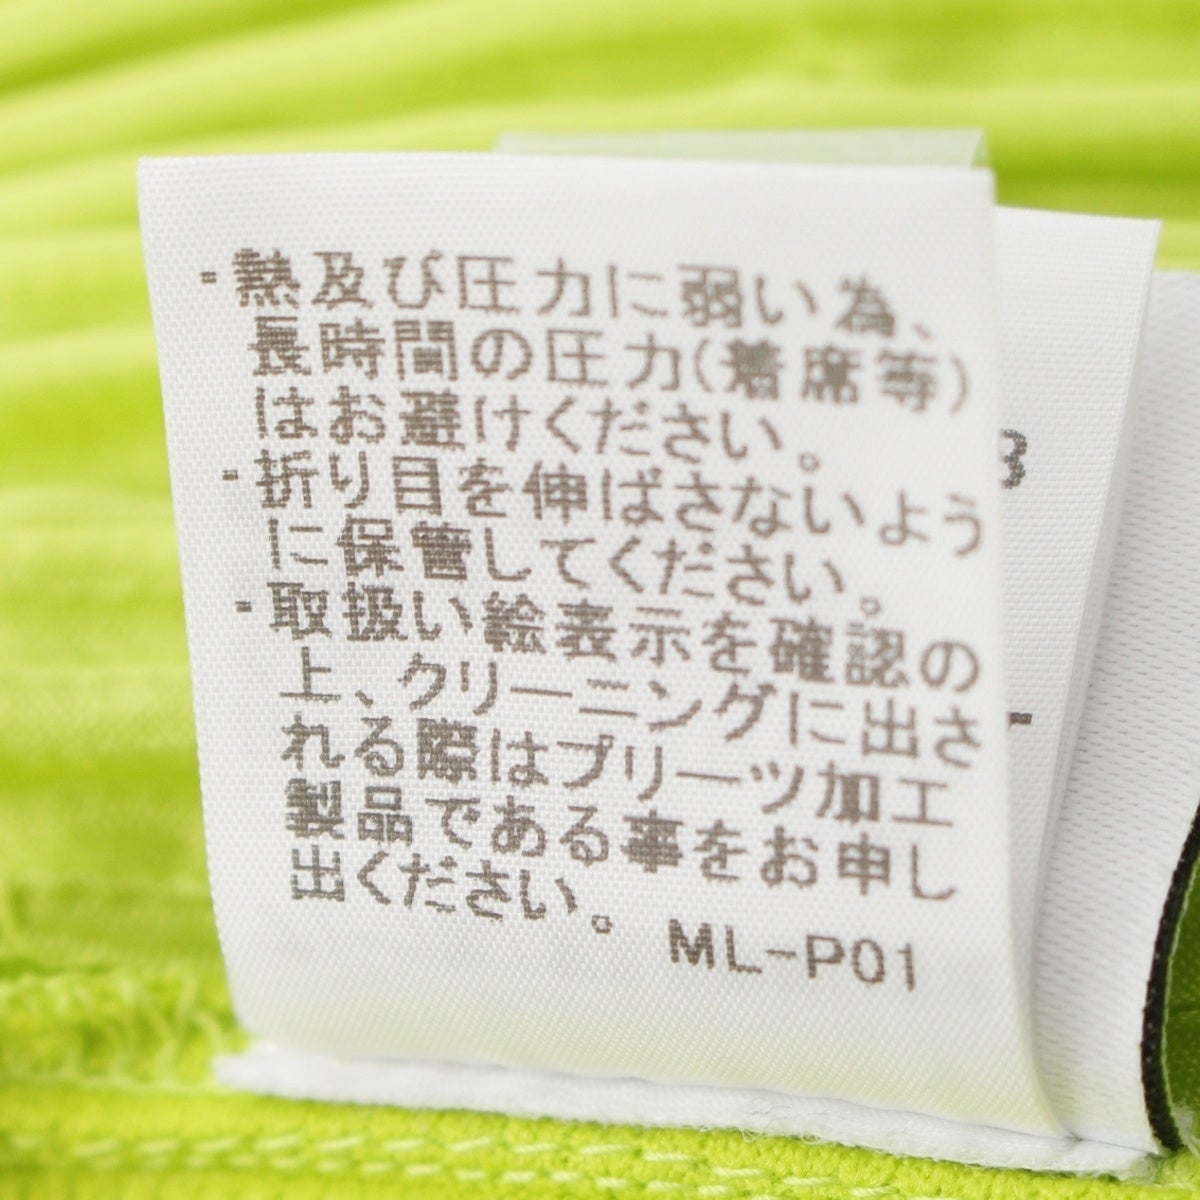 ・熱及び圧力に弱い為、
長時間の圧力(着席等)
はお避けください。
・折り目を伸ばさないよう
に保管してください。
・取扱い絵表示を確認の
上、クリーニングに出さ
れる際はプリーツ加工
製品である事をお申し
出ください。
ML-P01